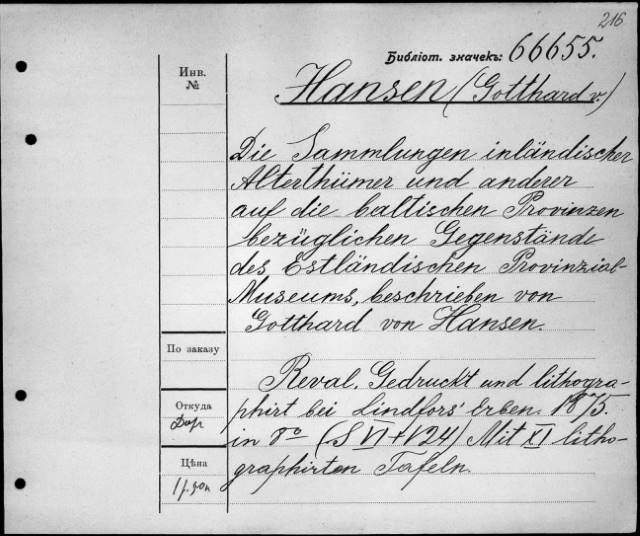 216
Библіот. значекъ: 66655.
Инв.
№
Hansen (Gotthard v.)
Die Sammlungen inländischer
Alterthümer und anderer
auf die baltischen Provinzen
bezüglichen Gegenstände
des Estländischen Provinzial-
Museums, beschrieben von
Gotthard von Hansen.
По заказу
Reval. Gedruckt und lithogra-
phirt bei Lindfors' Erben. 1875.
Откуда
Дар
in 8° (S VI + 124) Mit XI litho-
graphirten Tafeln.
Цѣна